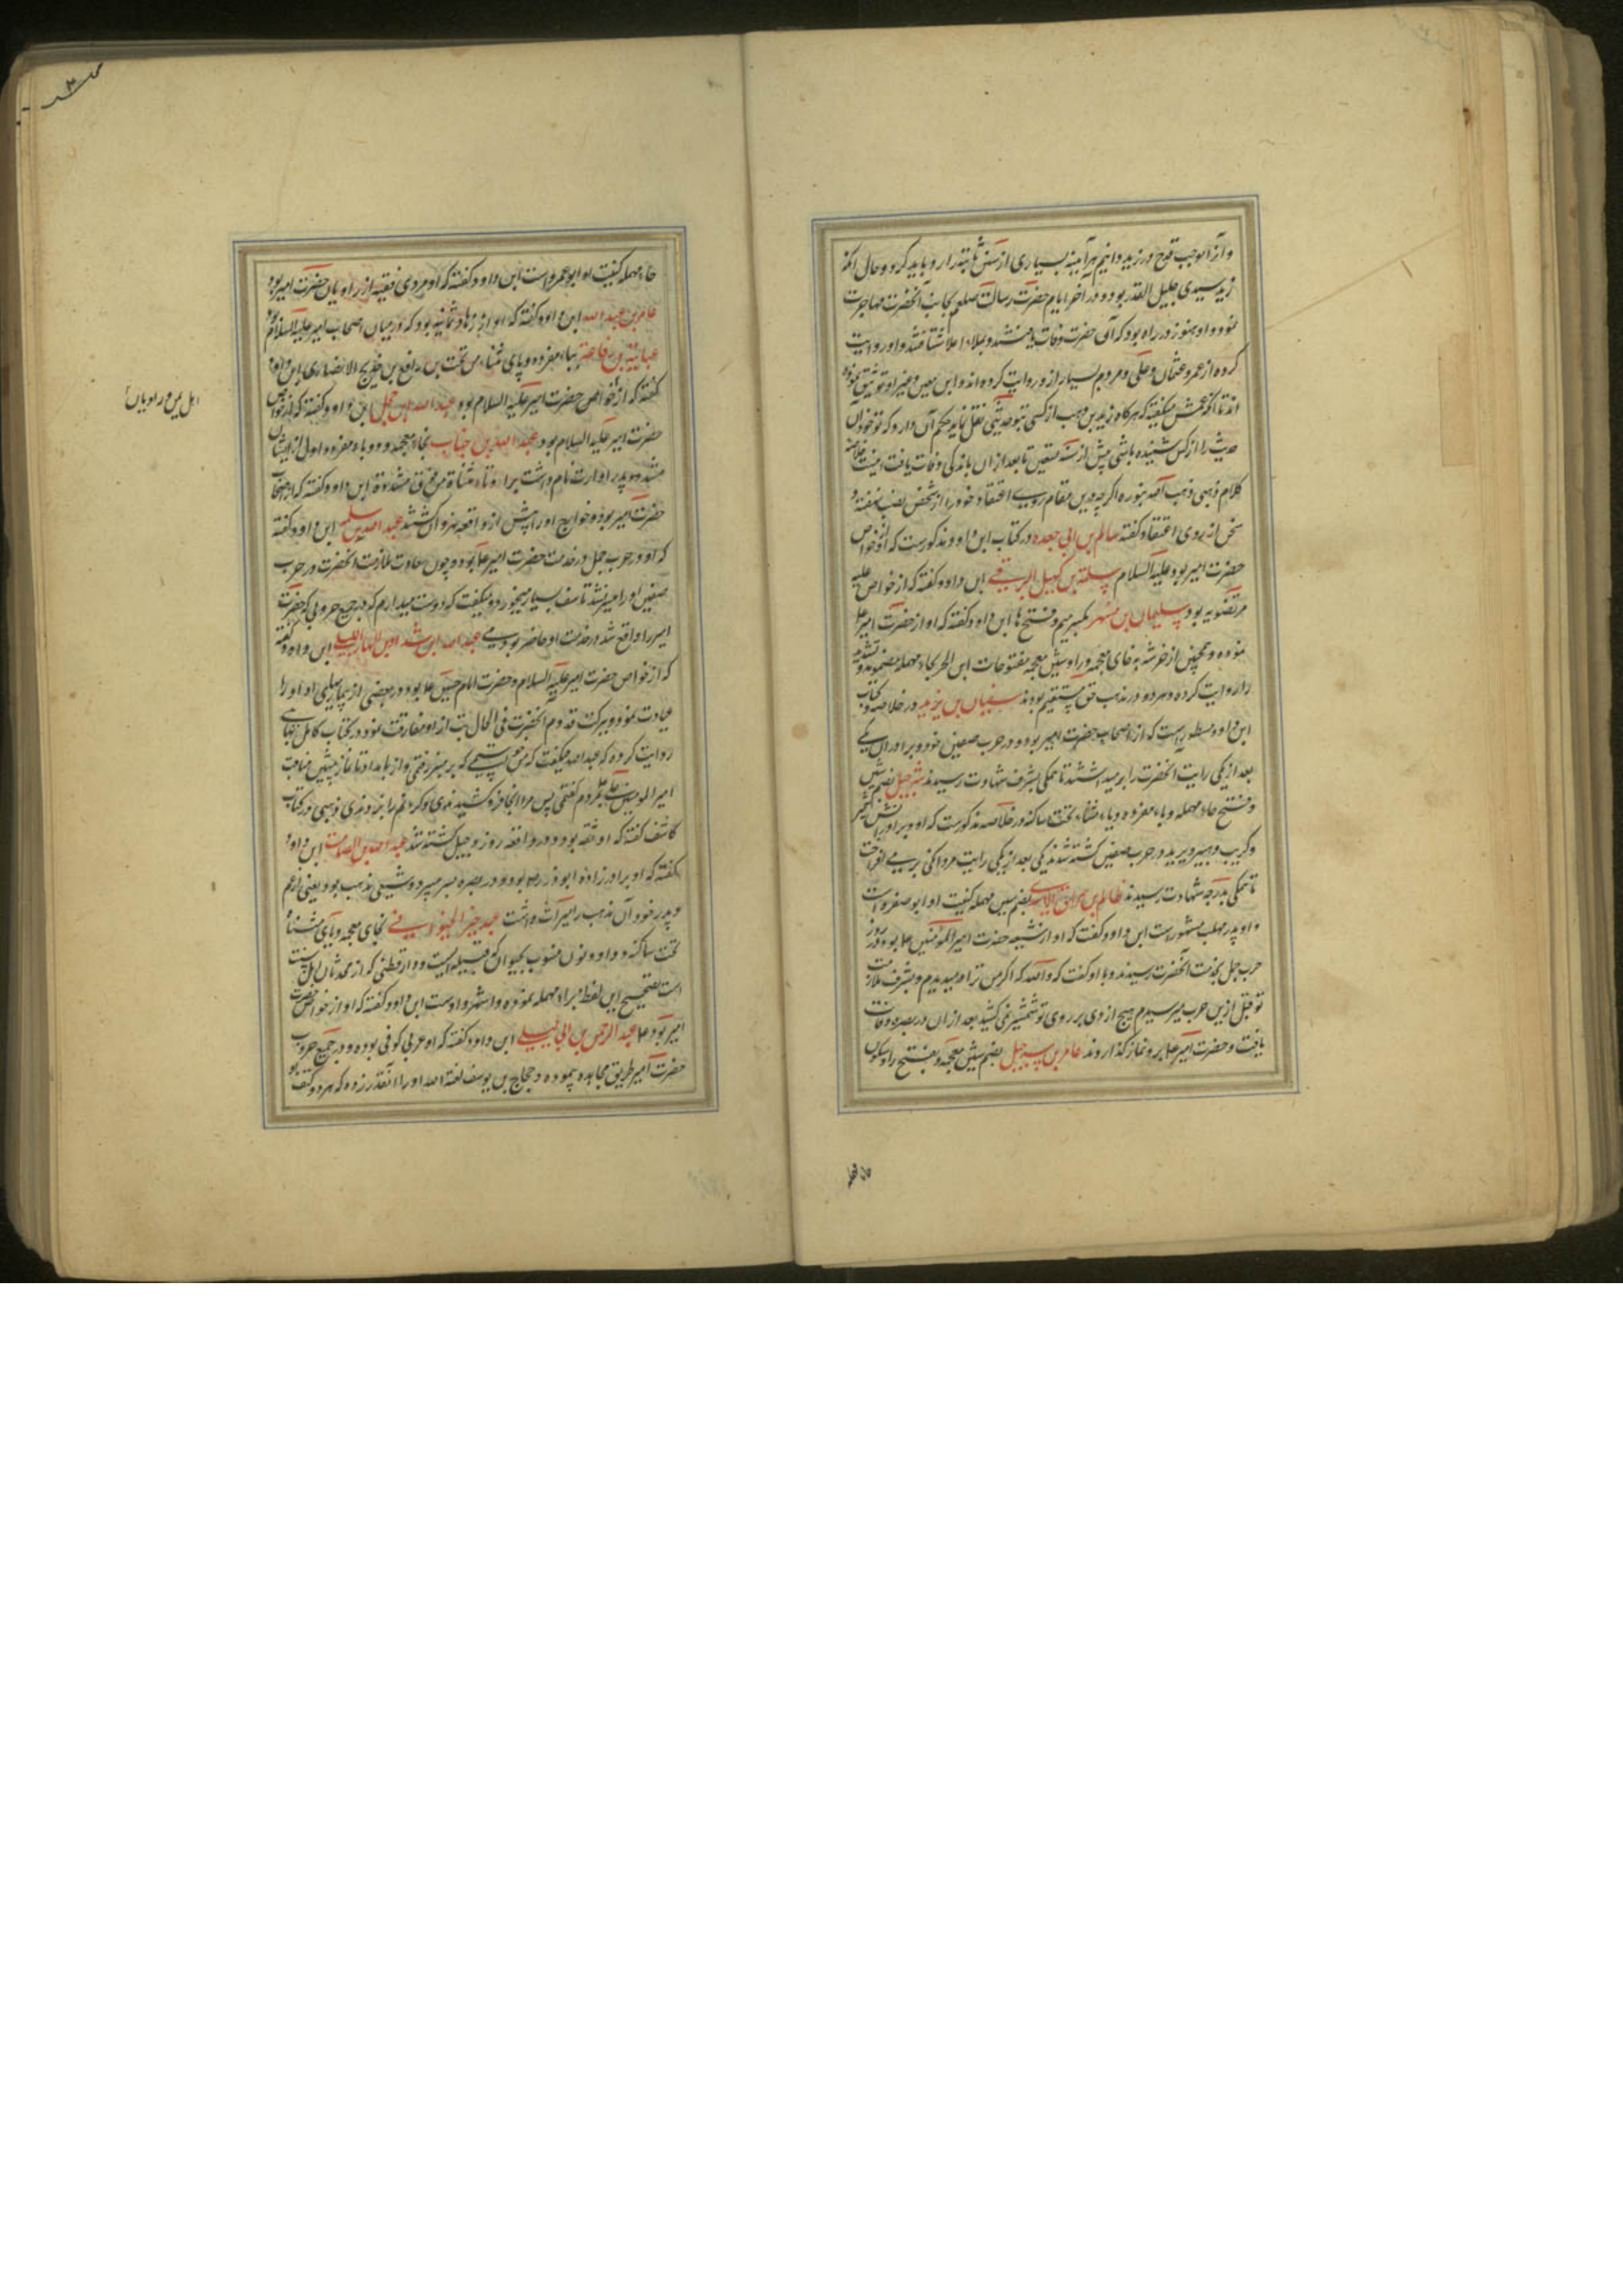 و آنرا موجب قدح در زید دانیم هر آینه بسیاری از سنن ثابته را رد باید کرد و حال انکه
زید سیدی جلیل القدر بود و در آخر ایام حضرت رسالت صلعم بجانب آنحضرت مهاجرت
نمود و او هنوز در راه بود که آن حضرت وفات یافتند و بملاء اعلا شتافتند و او روایت
کرده از عمر و عثمان و علی و مردم بسیار ازو روایت کرده اند و ابن معین و غیر او توثیق نموده
اند تا انکه اعمش میگفته که هرگاه زید بن وهب از کسی بتو حدیثی نقل نماید حکم آن دارد که تو خود آن
حدیث را از آن کس شنیده باشی پیش از سنه تسعین یا بعد از ان باندکی وفات یافت اینست خلاصه
کلام ذهبی ذهب الله بنوره اگرچه درین مقام روی اعتقاد خود را از شخص نصب نهفته و
سخن از روی اعتقاد گفته سالم بن ابی جعده در کتاب ابن داود مذکورست که او از خواص
حضرت امیر بود علیه السلام سلمة بن کهیل البریقی ابن داود گفته که از خواص علیه
مرتضویه بود سلیمان بن مسهر بکسر میم و فتح ها ابن داود گفته که او از حضرت امیر ع
نموده و همچنین از خرشه به خای معجمه و را و شین معجمه مفتوحات ابن الحر بحاء مهمله مضمومه و تشدید
را روایت کرده و هر دو در مذهب حق مستقیم بودند سفیان بن یزید در خلاصه و کتاب
ابن داود مسطورست که از اصحاب حضرت امیر بود و در حرب صفین خود و برادران یکی
بعد از یکی رایت آنحضرت را بر میداشتند تا همگی بشرف شهادت رسیدند شرحبیل بضم شین
و فتح حاء مهمله و باء مفرده و یاء مثناة تحت ساکنه در خلاصه مذکورست که او و برادرانش
و کریب و هبیر و یرید در حرب صفین کشته شدند یکی بعد از یکی رایت مردانگی برمی افراخت
تا همگی بدرجه شهادت رسیدند ظالم بن سراق الازدی بضم سین مهمله کنیت او ابو صفره است
و او پدر مهلب مشهورست ابن داود گفت که او از شیعه حضرت امیر المومنین ع بود و روز
حرب جمل بخدمت آنحضرت رسیدند و با او گفت که والله که اگر من ترا میدیدم و بشرف ملازمت
تو قبل ازین حرب میرسیدم هیچ ازدی بر روی تو شمشیر نمی کشید بعد از ان در بصره وفات
یافت و حضرت امیر ع برو نماز گذاروند عامر بن شرحبیل بضم شین معجمه و بفتح را و سکون
حاء مهمله کنیت او ابو عمرو است ابن داود گفته که او مردی فقیه از راویان حضرت امیر بود
عامر بن عبدالله ابن داود گفته که او از زهاد ثمانیه بود که در میان اصحاب امیر علیه السلام بود
عبایة بن رفاعة بباء مفرده و یای مثناة من تحت بن رافع بن خدیج الانصاری ابن داود
گفته که از خواص حضرت امیر علیه السلام بود عبدالله ابن حجل ابن داود گفته که از خواص
حضرت امیر علیه السلام بود عبدالله بن خباب بخاء معجمه و دو باء مفرده و اول از ایشان
مشدده و پدر او ارت نام داشت براء و تاء مثناة من فوق مشدده ابن داود گفته که از اصحاب
حضرت امیر بود و خوارج او را پیش از واقعه نهروان کشتند عبدالله بن سلمه ابن داود گفته
که او در حرب جمل در خدمت حضرت امیر ع بود و چون سعادت ملازمت آنحضرت در حرب
صفین او را میسر نشد تاسف بسیار میخورد و میگفت که دوست میدارم که در جمیع حروبی که حضرت
امیر را واقع شد در خدمت او حاضر بودمی عبدالله ابن شداد بن الهاد اللیثی ابن داود گفته
که از خواص حضرت امیر علیه السلام و حضرت امام حسین ع بود و در بعضی از بیماریهای او او را
عیادت نمود و ببرکت قدوم آنحضرت فی الحال تب از او مفارقت نمود در کتاب کامل بهایی
روایت کرده که عبدالله میگفت که من میخواستمی که بر منبر رفتمی و از بامداد تا نماز پیشین مناقب
امیر المومنین علی ع بمردم گفتمی پس مرا انجا فرو کشیدندی و گردنم را بزدندی و ذهبی در کتاب
کاشف گفته که او ثقه بود و در واقعه روز دجیل کشته شد عبدالله بن الصامت ابن داود
گفته که او برادر زاده ابوذر رض بود و در بصره بسر میبرد و شیعی مذهب بود و یعنی از عم
و پدر خود آن مذهب را میراث داشت عبد خیر الخیوانی بخای معجمه و یای مثناة
تحت ساکنه و واو و نون منسوب بخیوان که قبیله ایست و دارقطنی که از محدثان اهل سنت
است تصحیح این لفظ براء مهمله نموده و اشهر واوست ابن داود گفته که او از خواص حضرت
امیر بود ع عبد الرحمن بن ابی لیلی ابن داود گفته که او عربی کوفی بوده و در جمیع حروب
حضرت امیر طریق مجاهده پیموده و حجاج بن یوسف لعنة الله او را آنقدر زده که هر دو کتف او